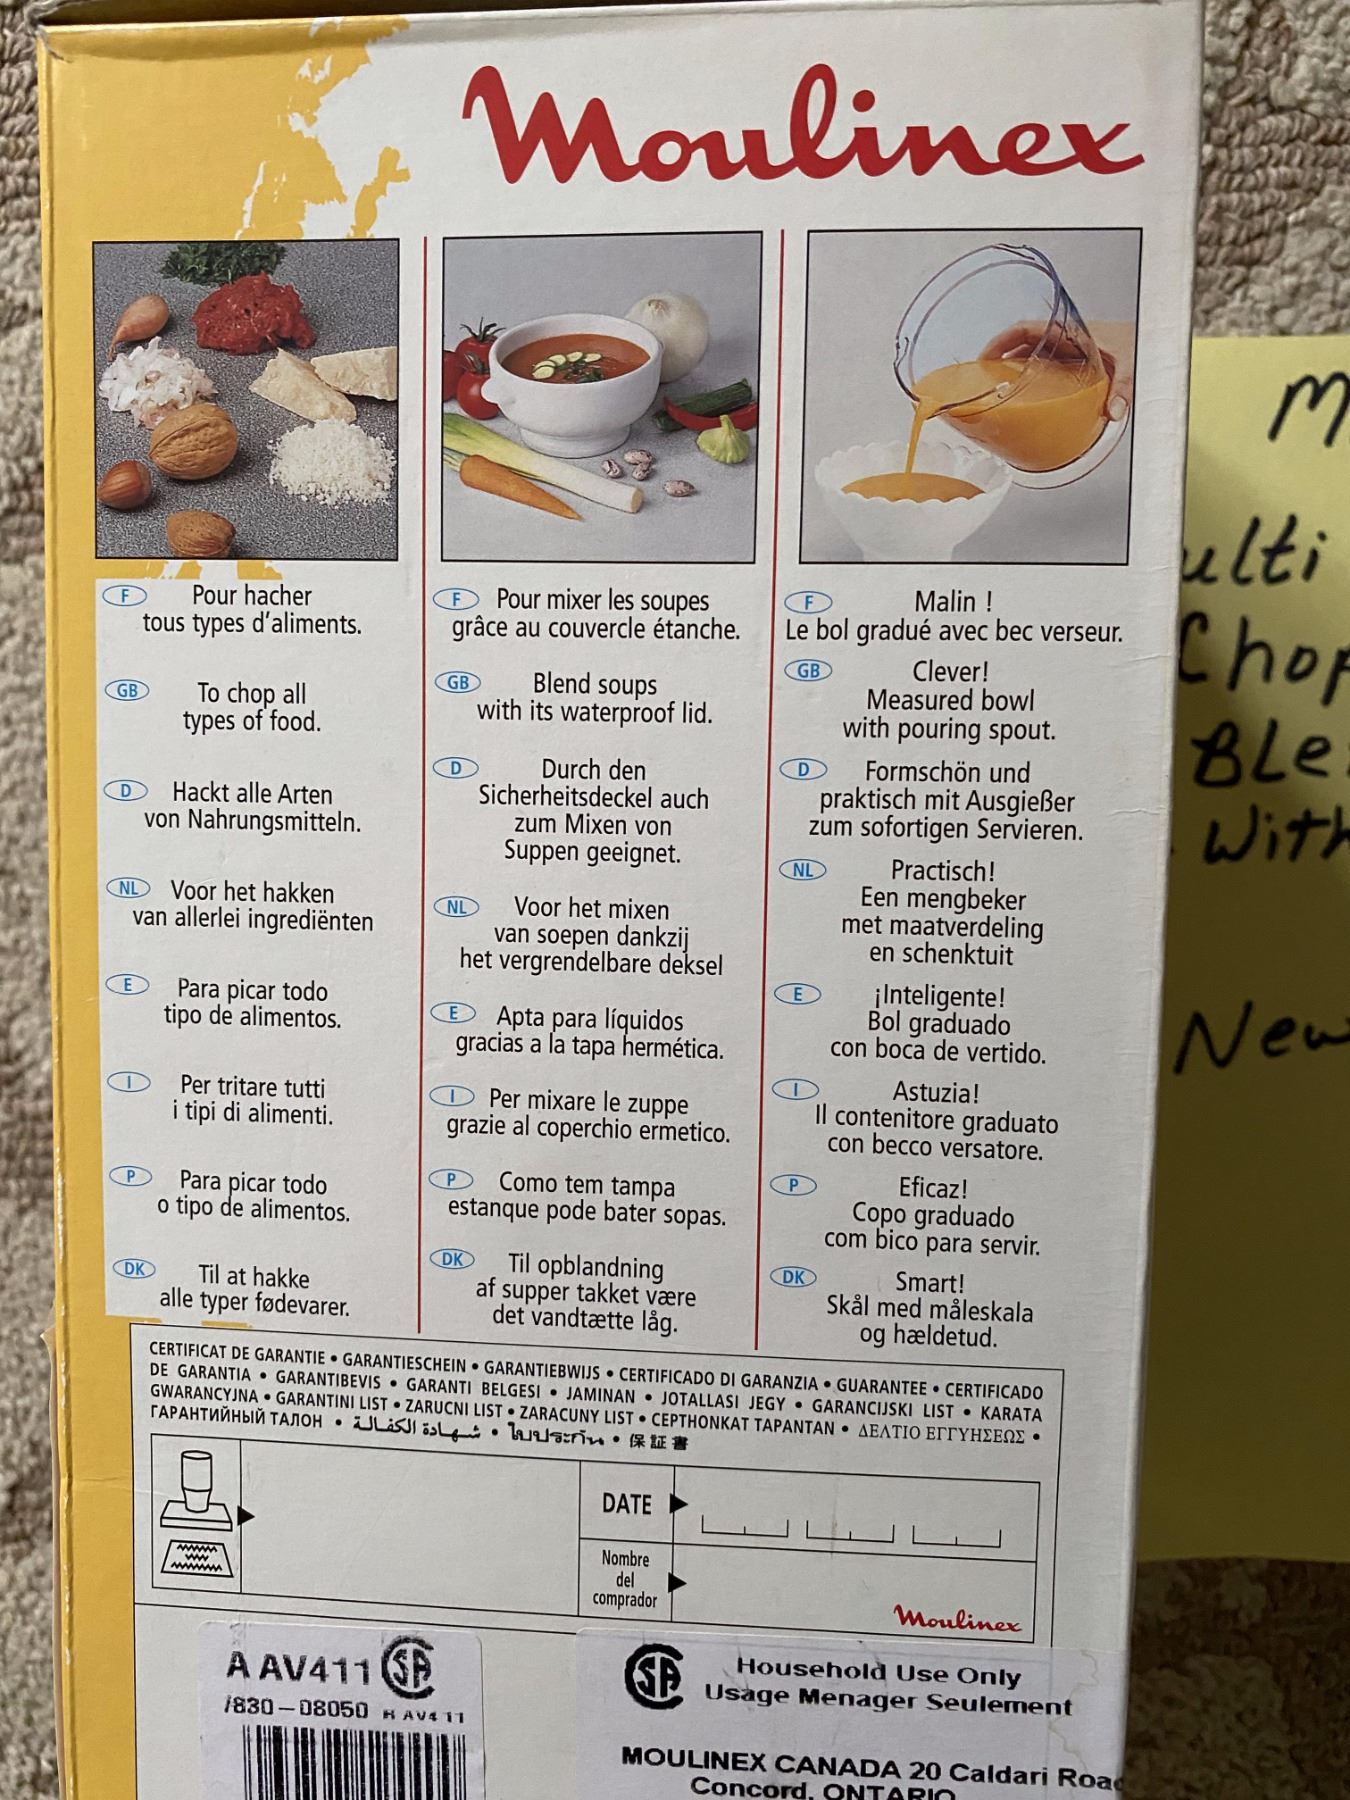 Moulinex
F Pour hacher
tous types d'aliments.
GB To chop all
types of food.
D Hackt alle Arten
von Nahrungsmitteln.
NL Voor het hakken
van allerlei ingrediënten
E Para picar todo
tipo de alimentos.
I Per tritare tutti
i tipi di alimenti.
P Para picar todo
o tipo de alimentos.
DK Til at hakke
alle typer fødevarer.
F Pour mixer les soupes
grâce au couvercle étanche.
GB Blend soups
with its waterproof lid.
D Durch den
Sicherheitsdeckel auch
zum Mixen von
Suppen geeignet.
NL Voor het mixen
van soepen dankzij
het vergrendelbare deksel
E Apta para líquidos
gracias a la tapa hermética.
I Per mixare le zuppe
grazie al coperchio ermetico.
P Como tem tampa
estanque pode bater sopas.
DK Til opblandning
af supper takket være
det vandtætte låg.
F Malin !
Le bol gradué avec bec verseur.
GB Clever!
Measured bowl
with pouring spout.
D Formschön und
praktisch mit Ausgießer
zum sofortigen Servieren.
NL Practisch!
Een mengbeker
met maatverdeling
en schenktuit
E ¡Inteligente!
Bol graduado
con boca de vertido.
I Astuzia!
Il contenitore graduato
con becco versatore.
P Eficaz!
Copo graduado
com bico para servir.
DK Smart!
Skål med måleskala
og hældetud.
CERTIFICAT DE GARANTIE • GARANTIESCHEIN • GARANTIEBWIJS • CERTIFICADO DI GARANZIA • GUARANTEE • CERTIFICADO
DE GARANTIA • GARANTIBEVIS • GARANTI BELGESI • JAMINAN • JOTALLASI JEGY • GARANCIJSKI LIST • KARATA
GWARANCYJNA • GARANTINI LIST • ZARUCNI LIST • ZARACUNY LIST • CEPTHONKAT TAPANTAN • ΔΕΛΤΙΟ ΕΓΓΥΗΣΕΩΣ •
ГАРАНТИЙНЫЙ ТАЛОН • شهادة الكفالة • ใบประกัน • 保証書
DATE
Nombre
del
comprador
Moulinex
A AV411 SA
7830-08050 R AV4 11
SA Household Use Only
Usage Menager Seulement
MOULINEX CANADA 20 Caldari Road
Concord, ONTARIO
ulti
Chop
With
New